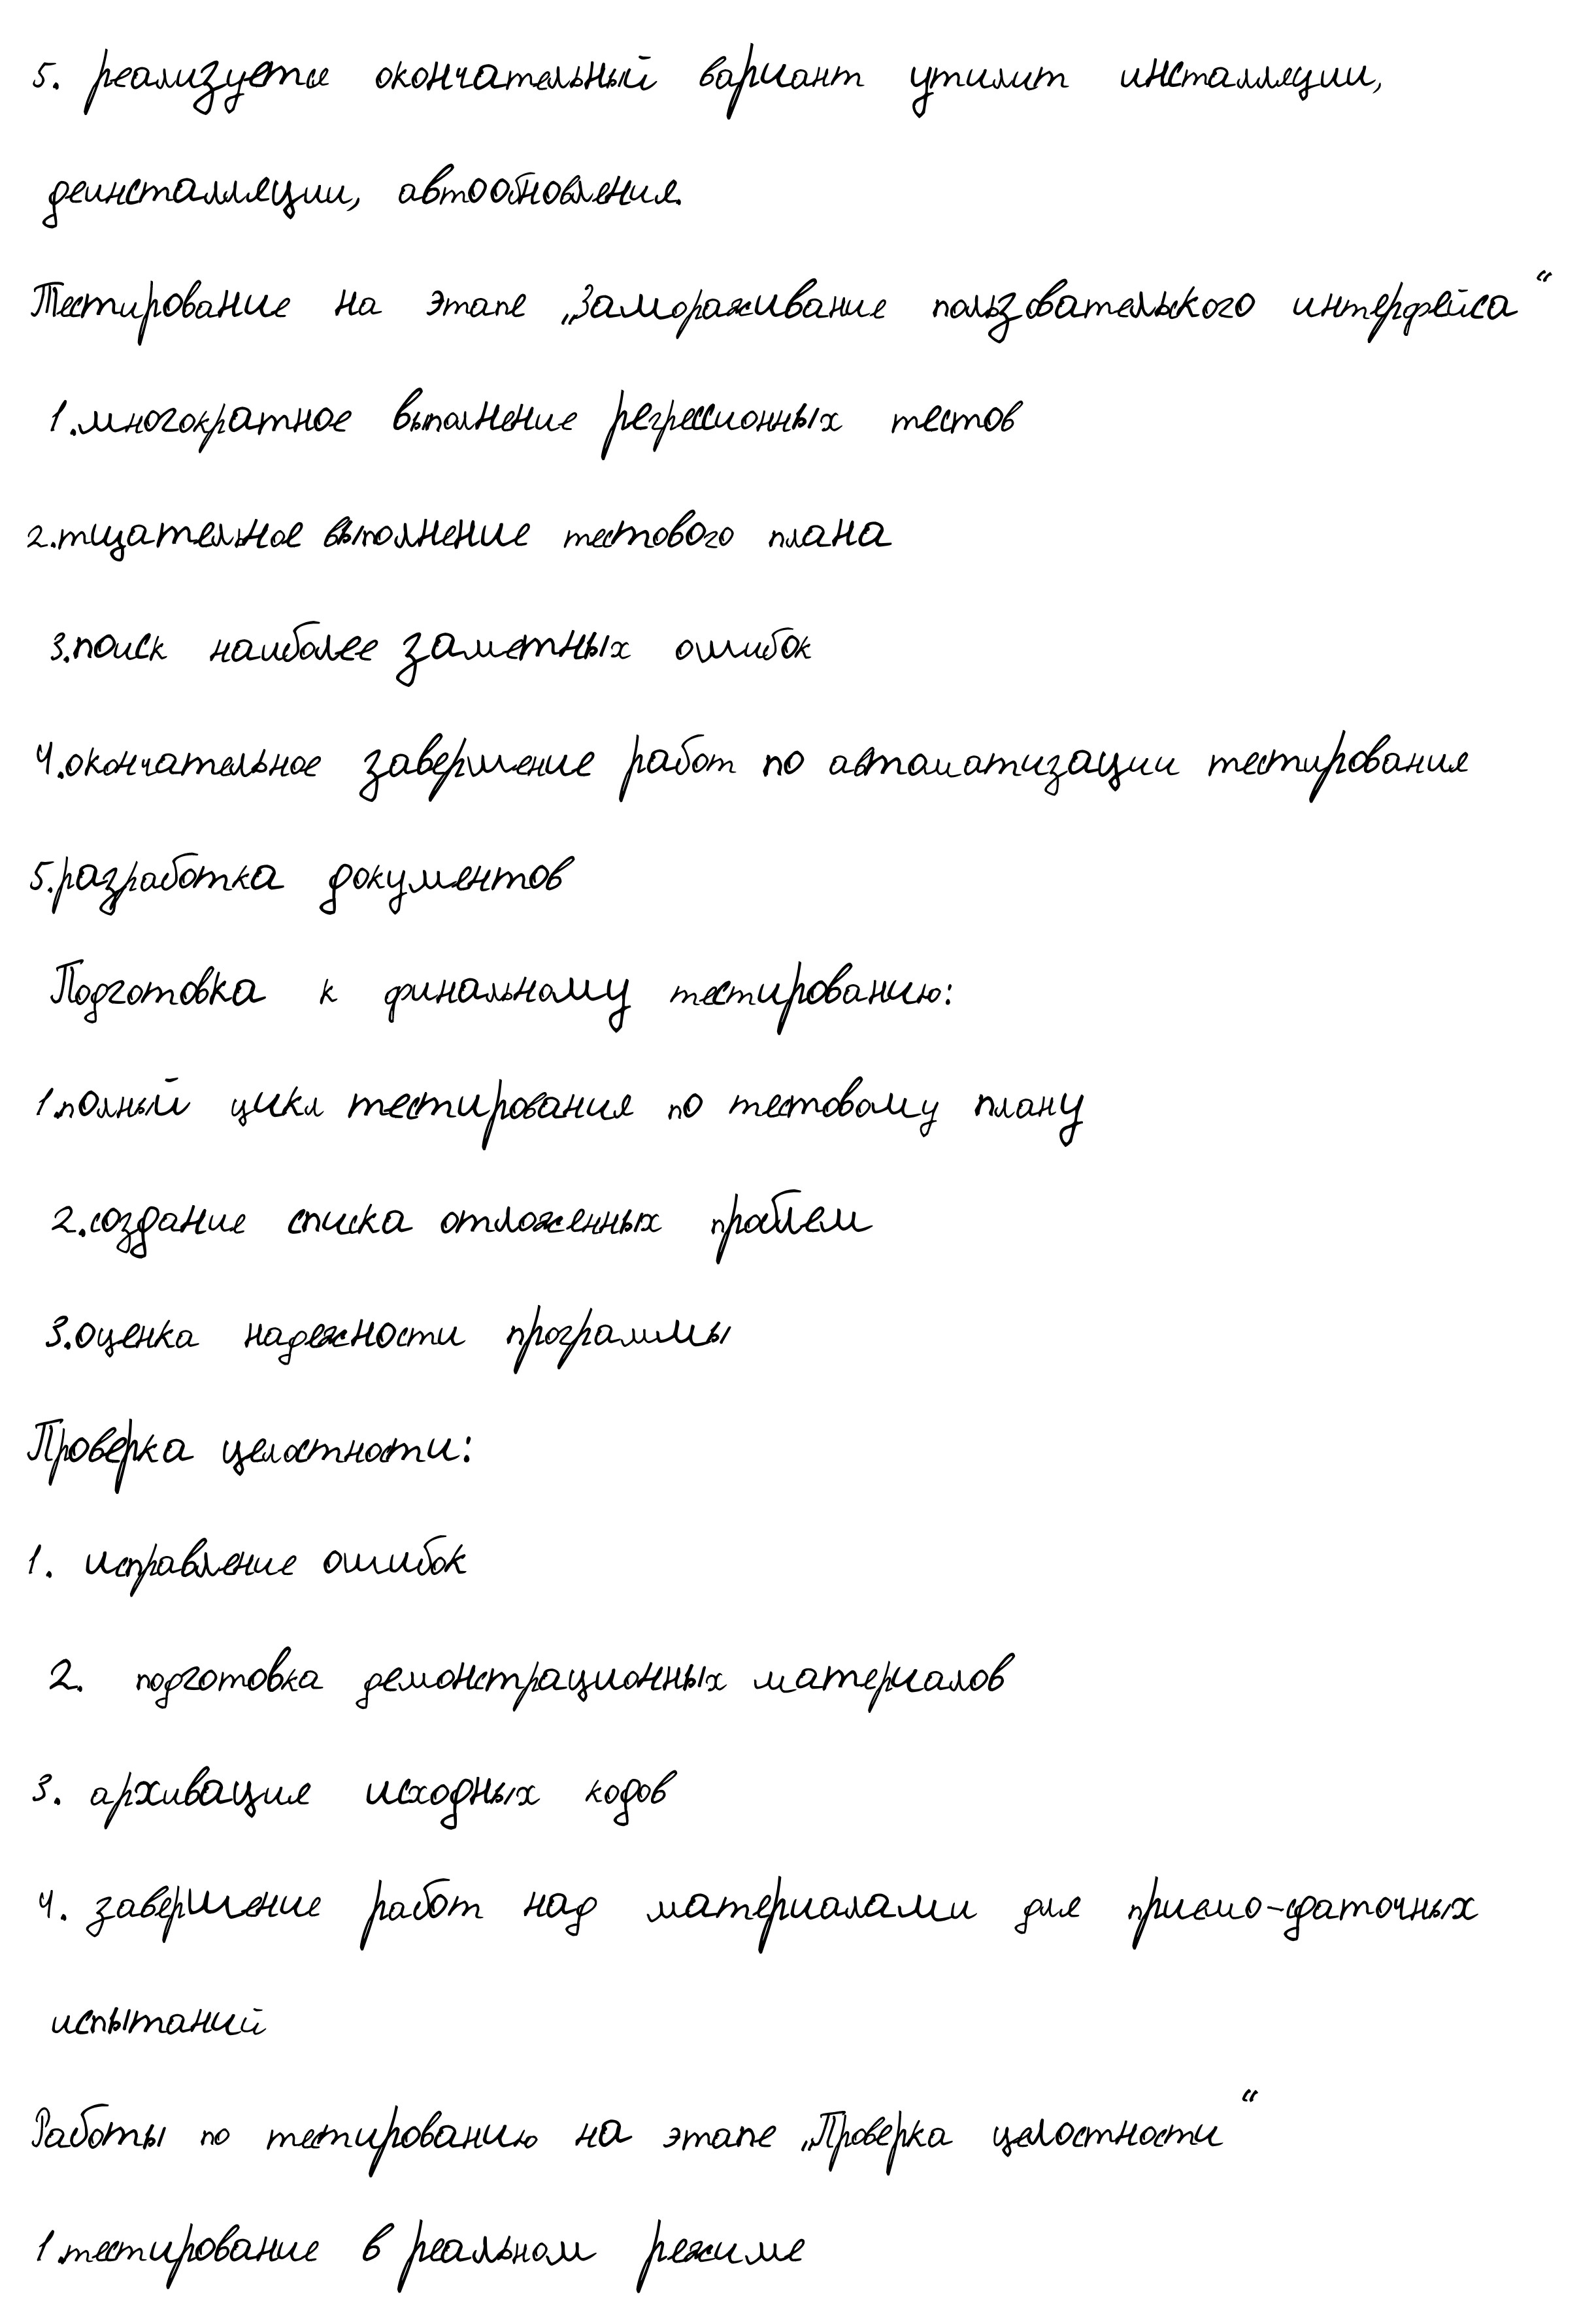 5. реализуется окончательный вариант утилит инсталляции,
деинсталляции, автообновления.
Тестирование на этапе „Замораживание пользовательского интерфейса“
1.многократное выполнение регрессионных тестов
2.тщательное выполнение тестового плана
3.поиск наиболее заметных ошибок
4.окончательное завершение работ по автоматизации тестирования
5.разработка документов
Подготовка к финальному тестированию:
1.полный цикл тестирования по тестовому плану
2.создание списка отложенных проблем
3.оценка надежности программы
Проверка целостности:
1. исправление ошибок
2. подготовка демонстрационных материалов
3. архивация исходных кодов
4. завершение работ над материалами для приемо-сдаточных
испытаний
Работы по тестированию на этапе „Проверка целостности“
1.тестирование в реальном режиме